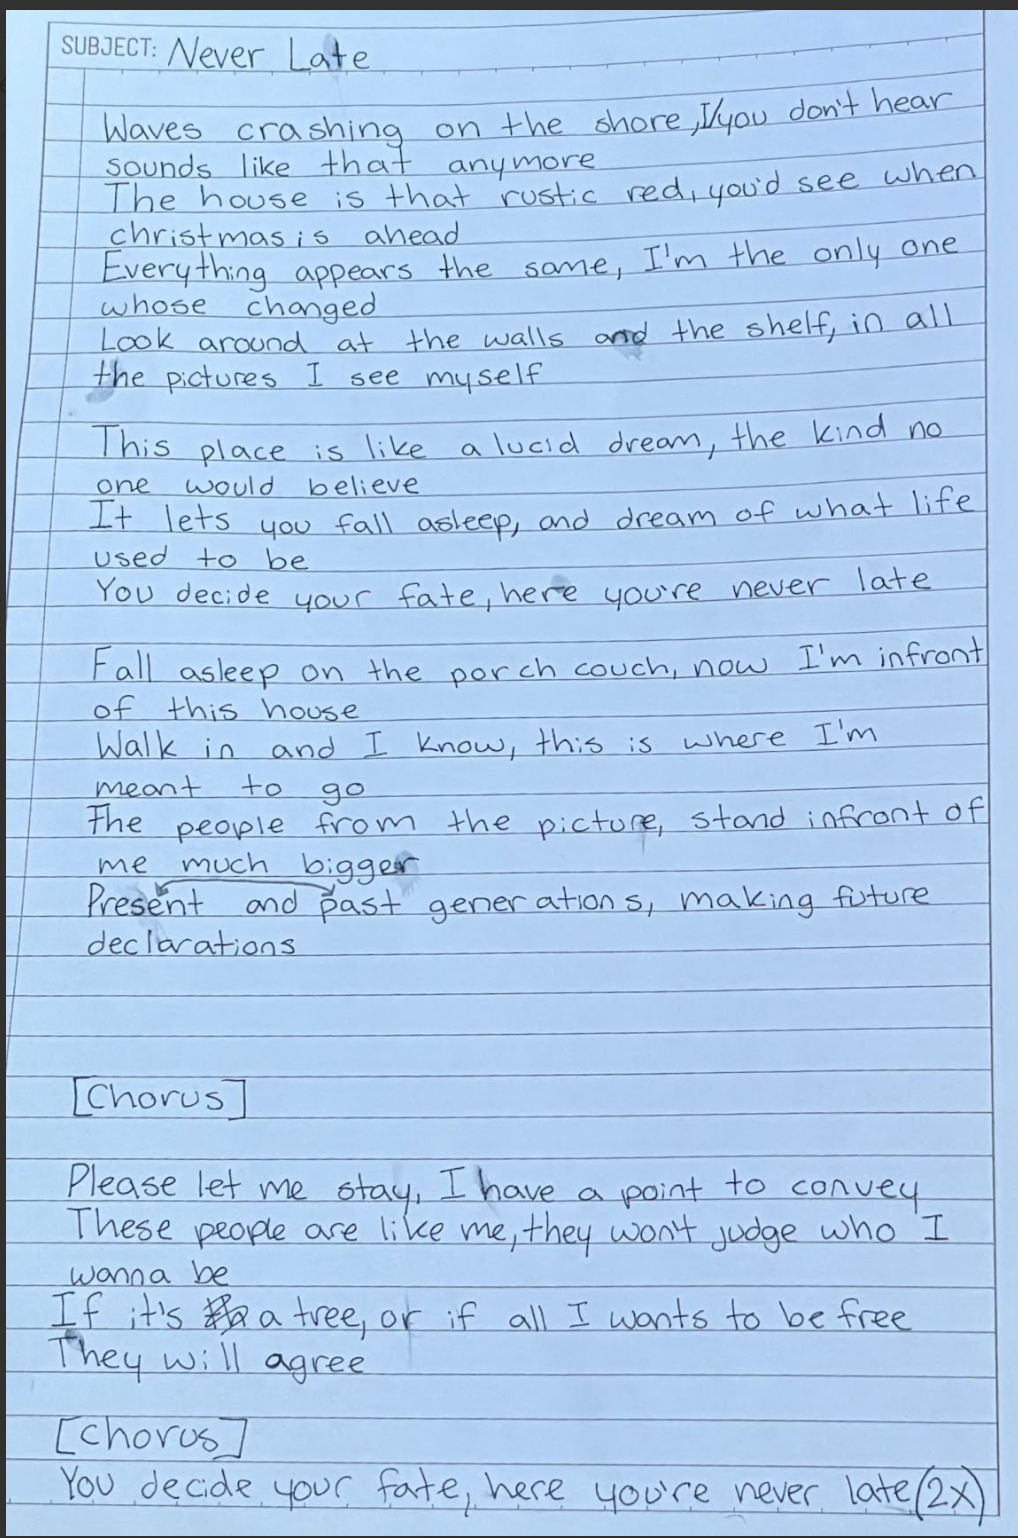 SUBJECT: Never Late
Waves crashing on the shore, I/you don't hear
sounds like that anymore
The house is that rustic red, you'd see when
christmas is ahead
Everything appears the same, I'm the only one
whose changed
Look around at the walls and the shelf, in all
the pictures I see myself
This place is like a lucid dream, the kind no
one would believe
It lets you fall asleep, and dream of what life
used to be
You decide your fate, here you're never late
Fall asleep on the porch couch, now I'm infront
of this house
Walk in and I know, this is where I'm
meant to go
The people from the picture, stand infront of
me much bigger
Present and past generations, making future
declarations
[Chorus]
Please let me stay, I have a point to convey
These people are like me, they won't judge who I
wanna be
If it's a tree, or if all I wants to be free
They will agree
[chorus]
You decide your fate, here you're never late (2x)